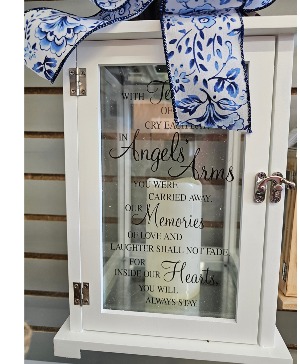 WITH
OF
CRY EACH
IN Angels'
Arms
YOU WERE
CARRIED AWAY.
OUR Memories
OF LOVE AND
LAUGHTER SHALL NOT FADE,
FOR
INSIDE OUR Hearts,
YOU WILL
ALWAYS STAY